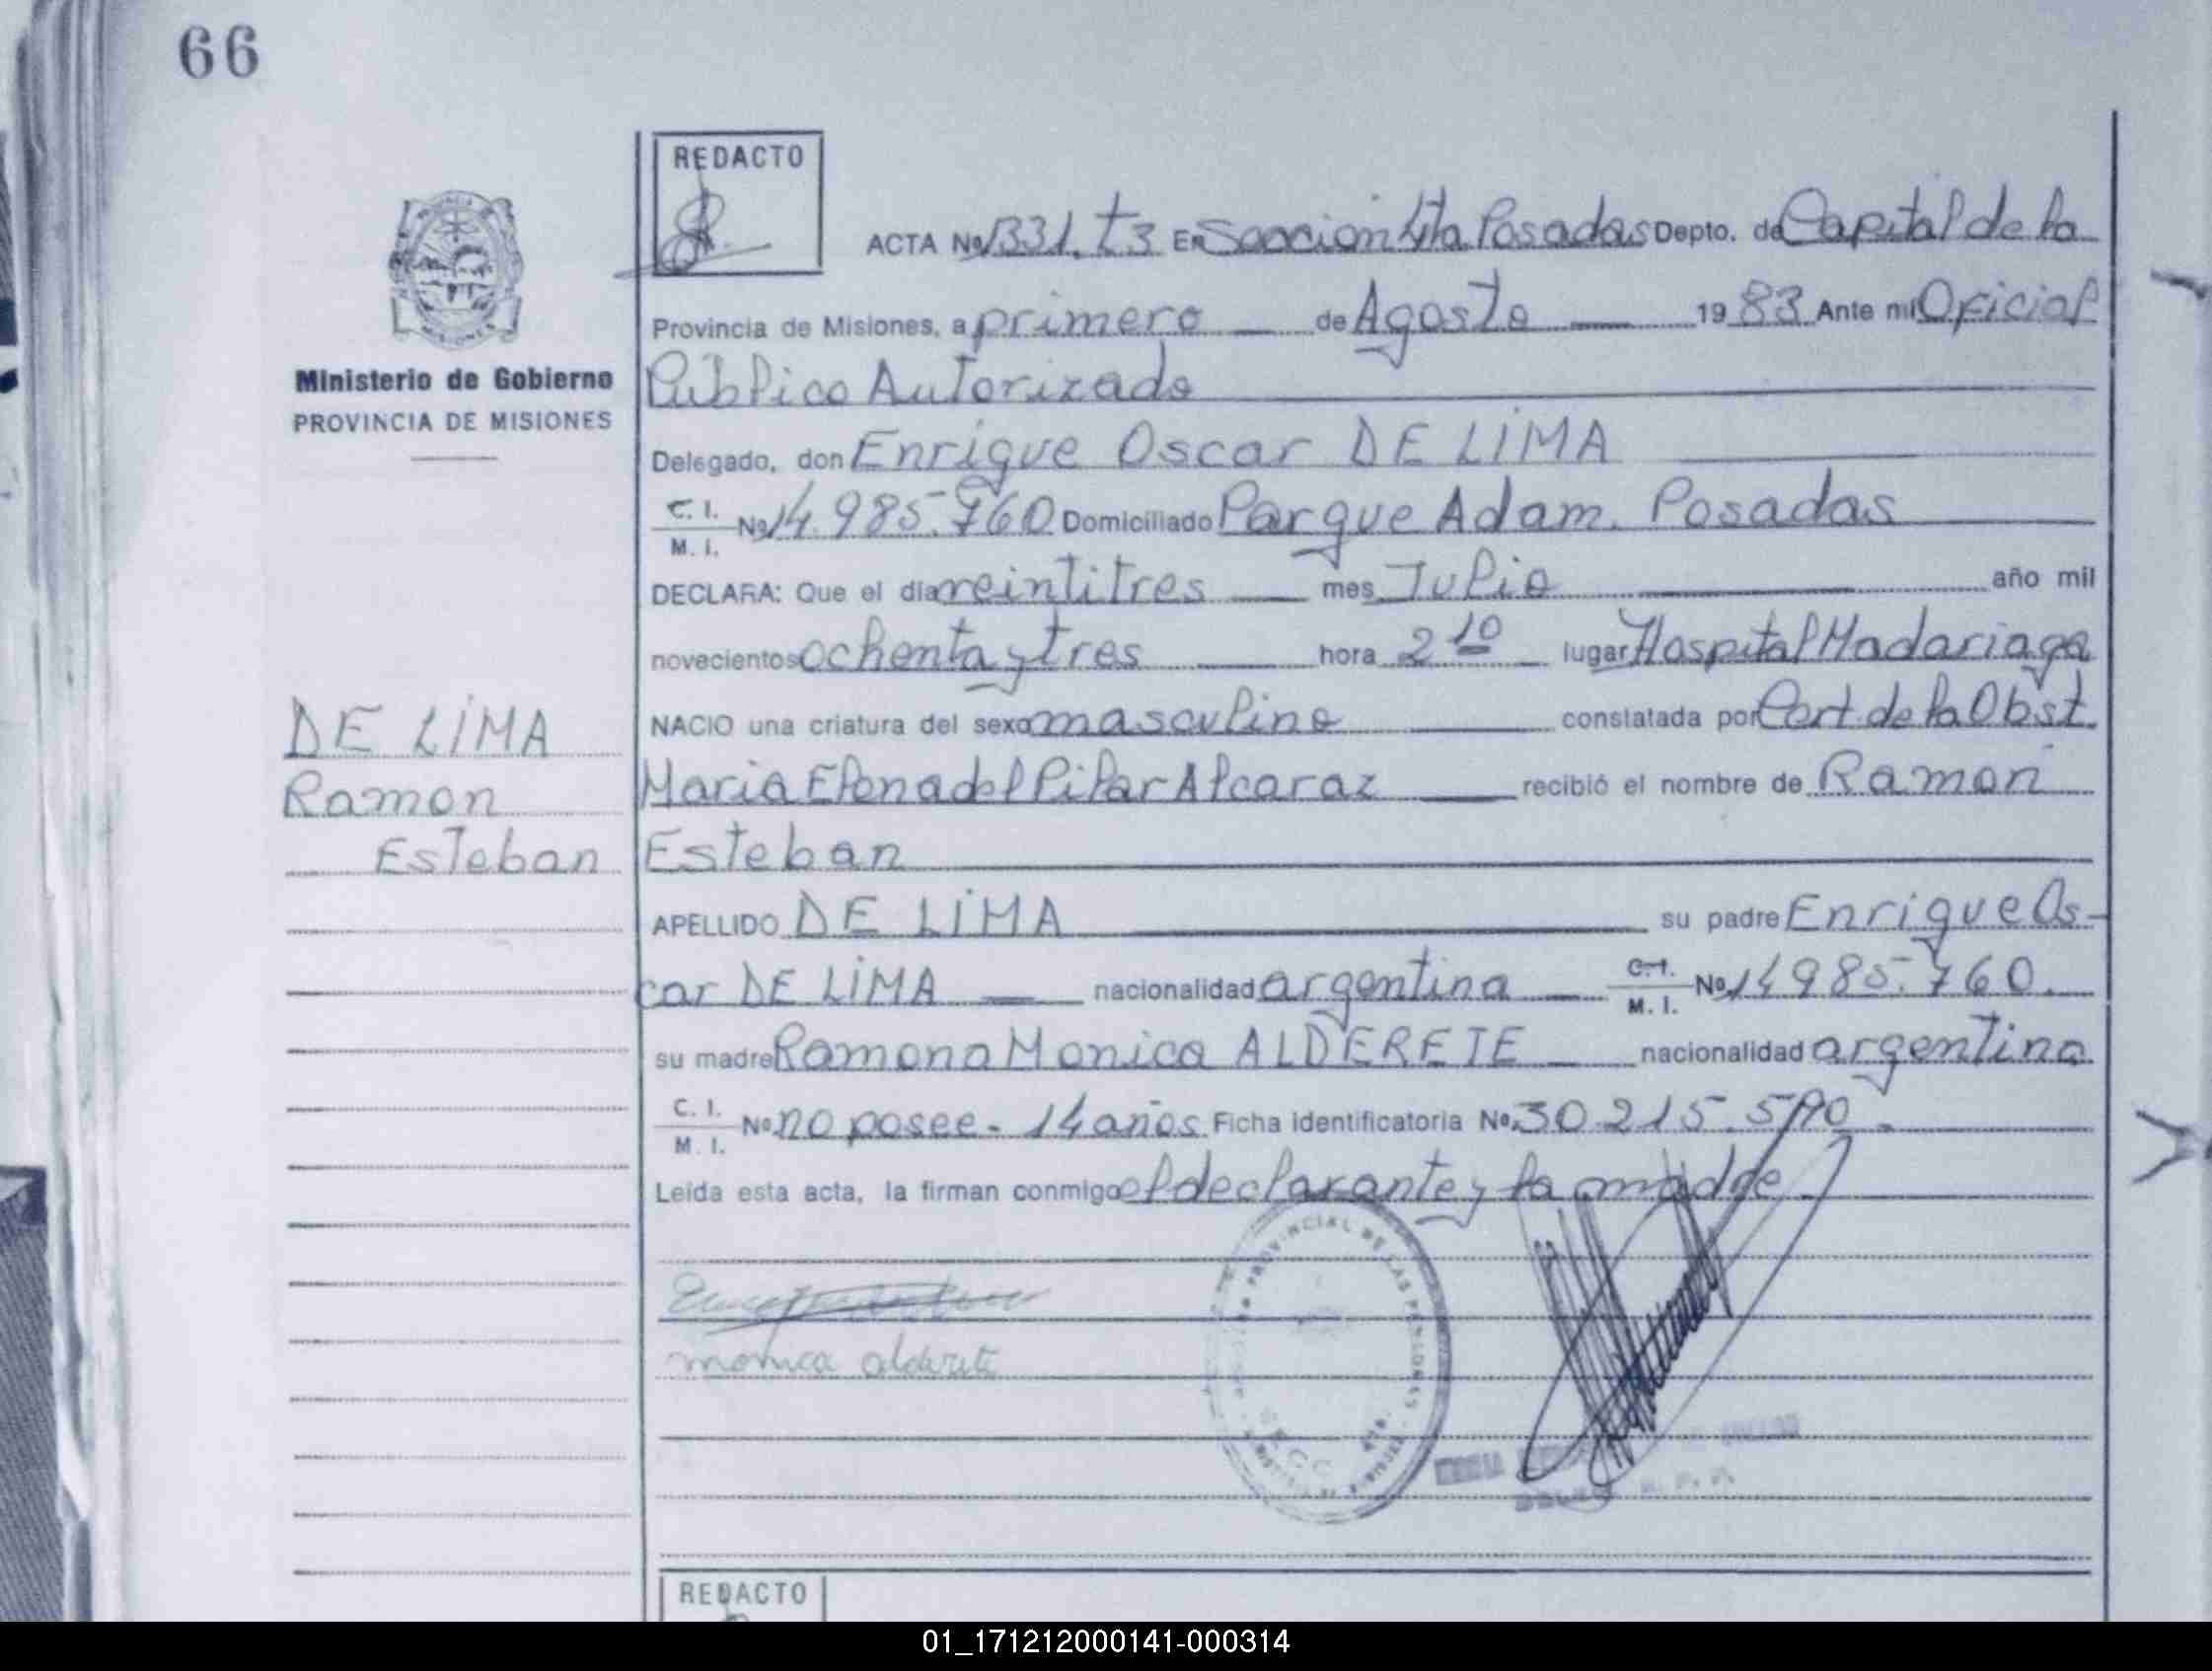 66
REDACTO
ACTA Nº 1331. t3 En Sección 4ta Posadas Depto. de Capital de la
Provincia de Misiones, a primero de Agosto 1983 Ante mi Oficial
Ministerio de Gobierno
PROVINCIA DE MISIONES
Público Autorizado
Delegado, don Enrique Oscar DE LIMA
C. I. M. I. Nº 14.985.760 Domiciliado Parque Adam. Posadas
DECLARA: Que el dia veintitres mes Julio año mil
novecientos ochenta y tres hora 2 10 lugar Hospital Madariaga
NACIO una criatura del sexo masculino constatada por Cert. de la Obst.
Maria Elena del Pilar Alcaraz recibió el nombre de Ramon
Esteban
DE LIMA
Ramon
Esteban
APELLIDO DE LIMA su padre Enrique Os-
car DE LIMA nacionalidad argentina C. I. M. I. Nº 14985.760.
su madre Ramona Monica ALDERETE nacionalidad argentina
C. I. M. I. Nº no posee - 14 años Ficha identificatoria Nº 30.215.590.
Leida esta acta, la firman conmigo el declarante y la madre
monica alderete
PROVINCIAL DE LAS PERSONAS
SECC 4ta.
REDACTO
01_171212000141-000314